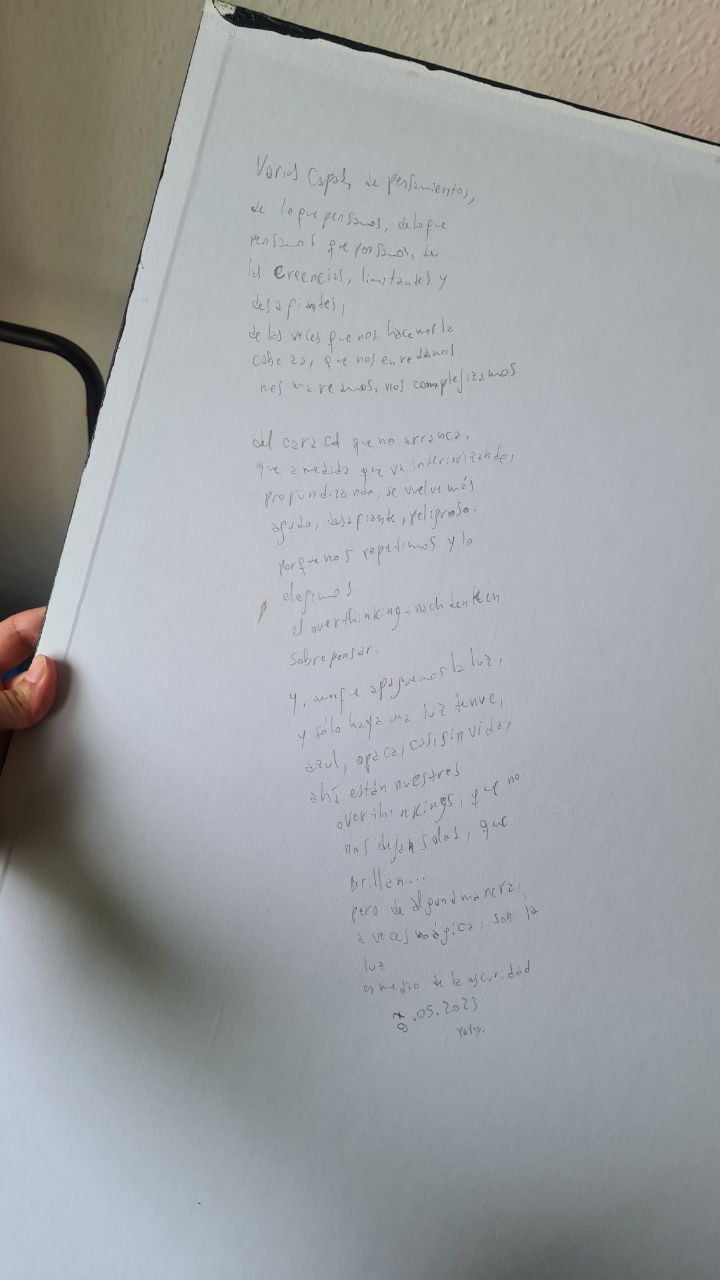 Varias capas de pensamientos,
de lo que pensamos, de lo que
pensamos que pensamos, de
las creencias, limitantes y
desafiantes,
de las veces que nos hacemos la
cabeza, que nos enredamos
nos mareamos, nos complejizamos
del caracol que no arranca,
que a medida que va interiorizando,
profundizando, se vuelve más
agudo, desafiante, peligroso.
porque nos repetimos y le
elegimos
el overthinking - nachdenken
sobrepensar.
y, aunque apaguemos la luz,
y sólo haya una luz tenue,
azul, opaca, casi sin vida,
ahí están nuestros
overthinkings, que no
nos dejan solos, que
brillan...
pero de alguna manera,
a veces mágica, son la
luz
en medio de la oscuridad
.05.2023